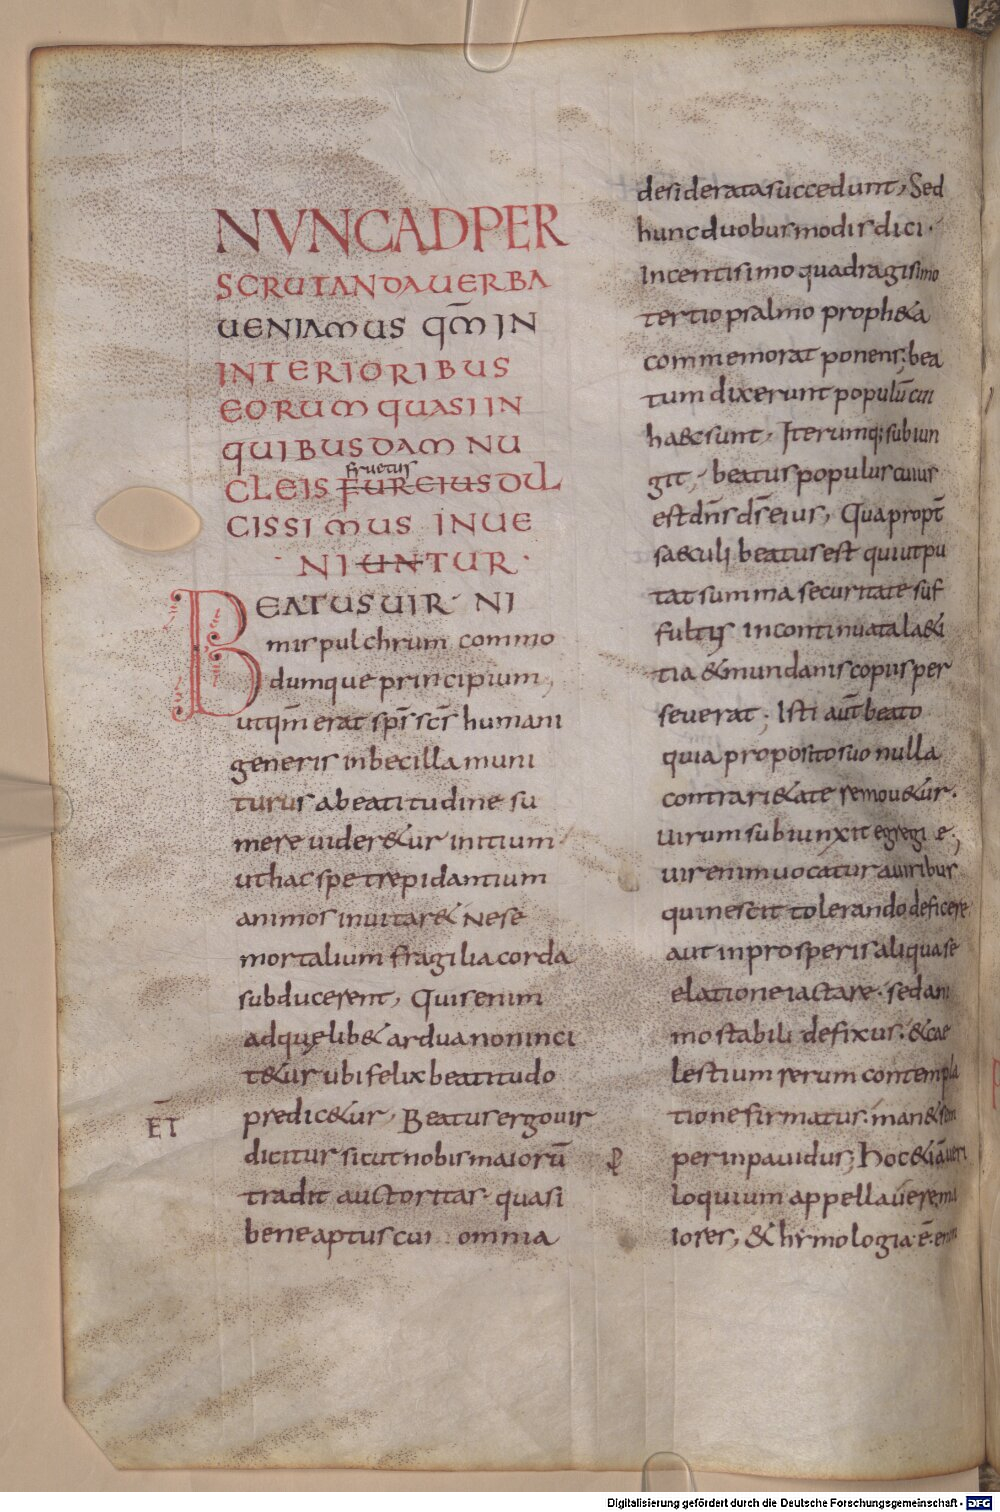 NVNCADPER
SCRUTANDAUERBA
UENIAMUS QM̄ IN
INTERIORIBUS
EORUM QUASI IN
QUIBUSDAM NU
fructus
CLEIS FUREIUS DUL
CISSIMUS INUE
NIUNTUR·
BEATUS UIR· NI
mis pulchrum commo
dumque principium,
utqm̄ erat sps̄ scs̄ humani
generis inbecilla muni
turus a beatitudine su
mere uider&ur initium
ut hac spe trepidantium
animos inuitar& Ne se
mortalium fragilia corda
subducerent, Quis enim
ad quę lib& ardua non inci
t&ur ubi felix beatitudo
ĒT
predic&ur, Beatus ergo uir
dicitur sicut nobis maiorū
tradit auctoritas· quasi
bene aptus cui omnia
desiderata succedunt, Sed
hunc duobus modis dici·
In centisimo quadragisimo
tertio psalmo proph&a
commemorat ponens; bea
tum dixerunt populū cui
haec sunt, Iterumq; subiun
git, beatus populus cuius
est dn̄s ds̄ eius, Quapropt̄
saeculi beatus est qui ut pu
tat summa securitate suf
fultus in continuata la&i
tia & mundanis copiis per
seuerat; Isti aut̄ beato
quia proposito suo nulla
contrari&ate remou&ur·
uirum subiunxit egregi e;
uir enim uocatur a uiribus
qui nescit tolerando deficere
aut in prosperis aliqua se
elatione iactare· sed ani
mo stabili defixus· & cae
lestium rerum contempla
tione firmatus· man& sem
per inpauidus; Hoc &iā ueri
loquium appellauere ma
iores, & hymologia ē· enim